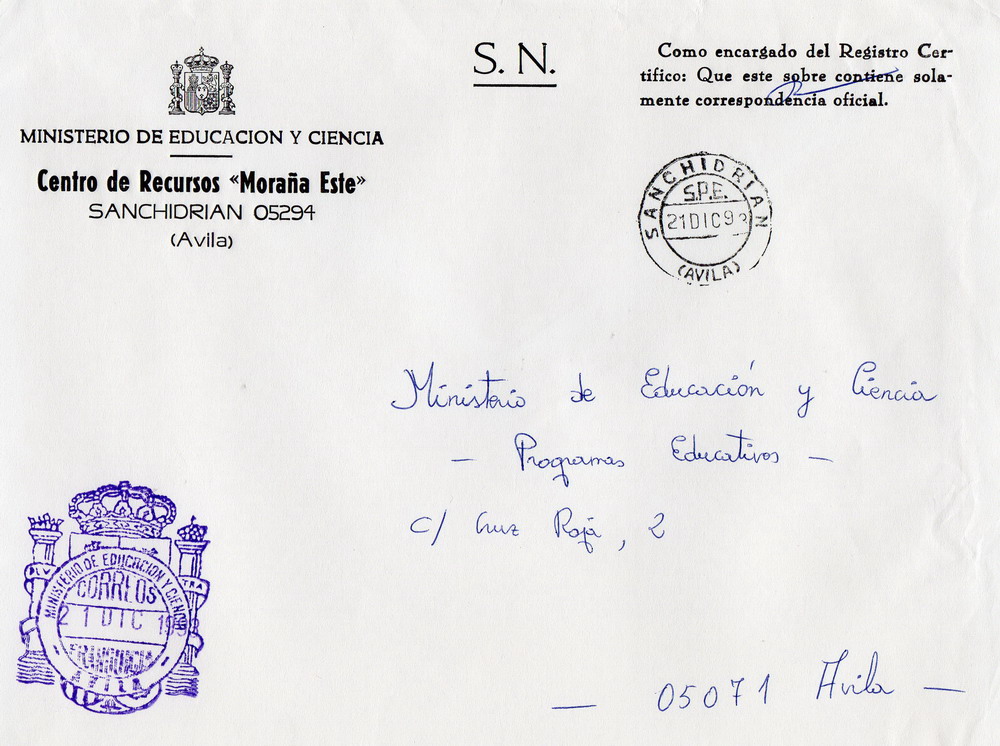 S. N.
Como encargado del Registro Cer-
tifico: Que este sobre contiene sola-
mente correspondencia oficial.
MINISTERIO DE EDUCACION Y CIENCIA
Centro de Recursos «Moraña Este»
SANCHIDRIAN 05294
(Avila)
SANCHIDRIAN
S.P.E.
21 DIC 93
(AVILA)
Ministerio de Educación y Ciencia
— Programas Educativos —
C/ Cruz Roja, 2
— 05071 Avila —
PLV TRA
MINISTERIO DE EDUCACION Y CIENCIA
CORREOS
21 DIC 1993
FRANQUICIA
AVILA